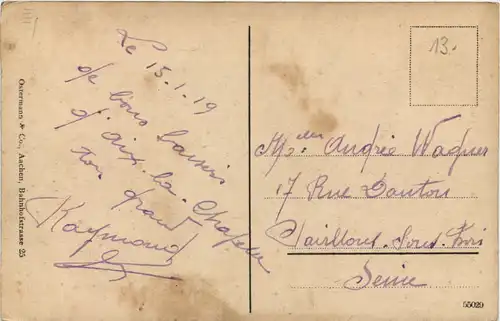 Le 15.1.19
de bons baisers
d'aix-la-Chapelle
ton grand
Raymond
Ostermann & Co., Aachen, Bahnhofstrasse 25
13.
Melle Andrée Wagner
17 Rue Danton
Sous-Bois
Seine
55029